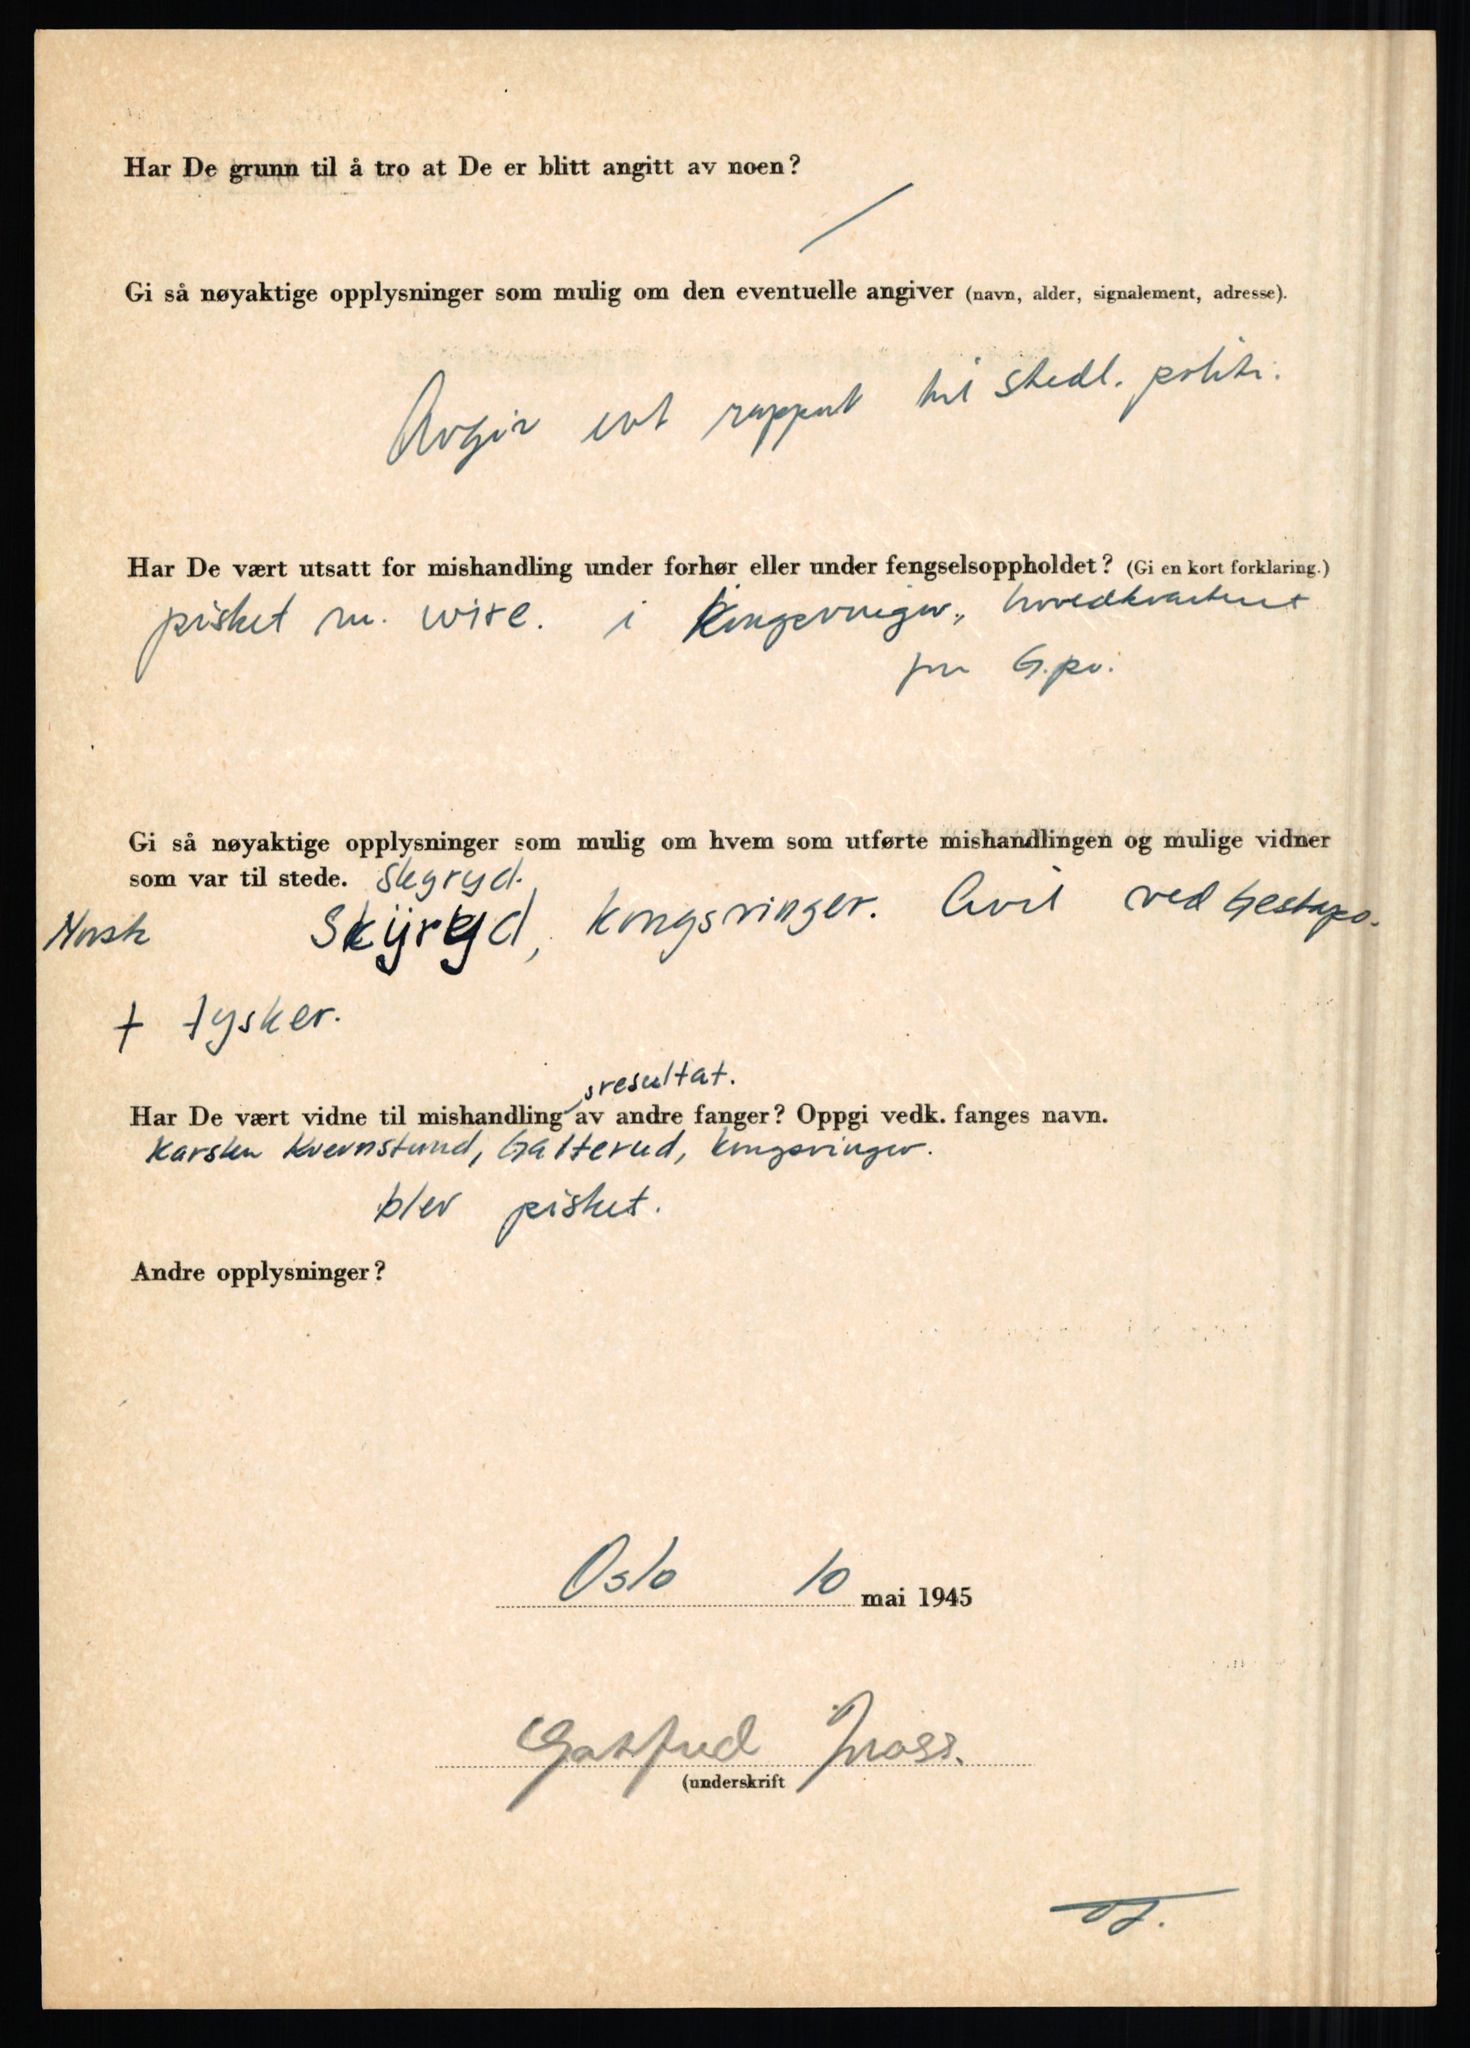 Har De grunn til å tro at De er blitt angitt av noen?
Gi så nøyaktige opplysninger som mulig om den eventuelle angiver (navn, alder, signalement, adresse).
Avgir evt rapport til stedl. politi.
Har De vært utsatt for mishandling under forhør eller under fengselsoppholdet? (Gi en kort forklaring.)
pisket m. wire. i Kongsvinger, hovedkvarteret
for G.po.
Gi så nøyaktige opplysninger som mulig om hvem som utførte mishandlingen og mulige vidner
som var til stede. Skyryd.
Norsk Skyryd, Kongsvinger. Civil ved Gestapo.
+ tysker.
sresultat.
Har De vært vidne til mishandling av andre fanger? Oppgi vedk. fanges navn.
Karsten Kvernstund, Galterud, Kongsvinger.
blev pisket.
Andre opplysninger?
Oslo 10 mai 1945
(underskrift